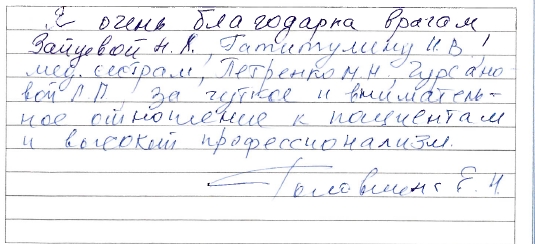 Я очень благодарна врачам
Зайцевой Н.К., Гатитулину И.В.!
мед. сестрам, Петренко М.Н., Гурсано
вой Л.П. за чуткое и вниматель-
ное отношение к пациентам
и высокий профессионализм.
Е.Н.